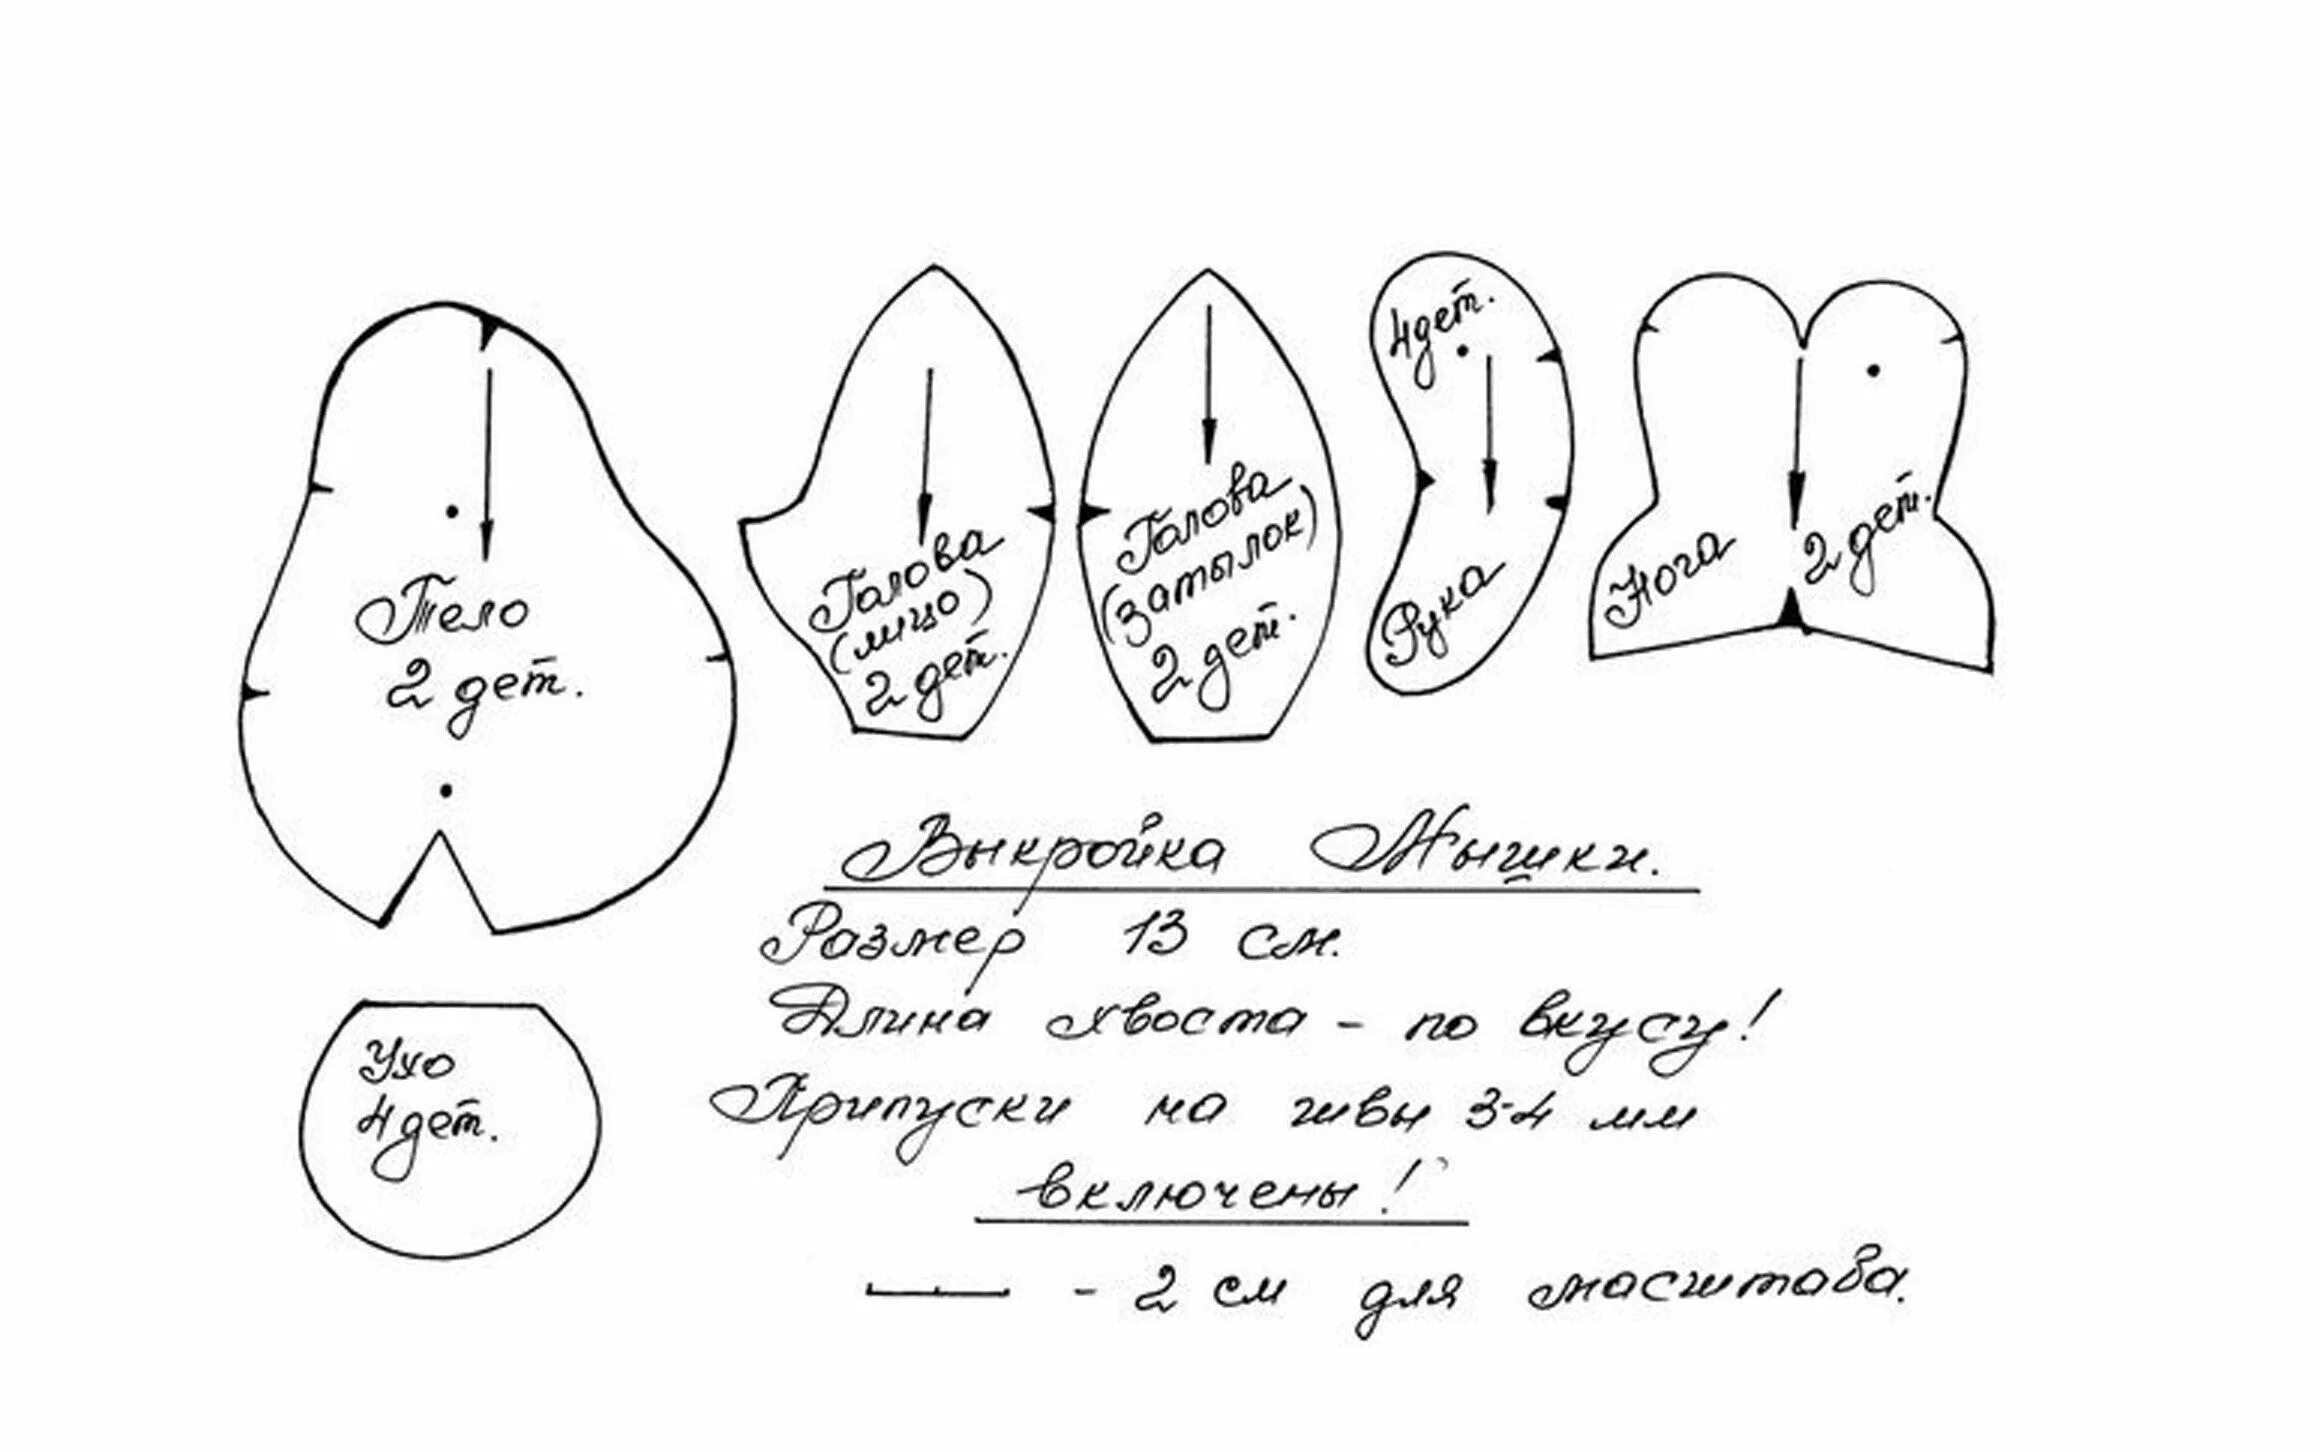 Тело
2 дет.
Голова
(лицо)
2 дет.
Голова
(затылок)
2 дет.
4 дет.
Рука
Нога
2 дет.
Ухо
4 дет.
Выкройка Мышки.
Размер 13 см.
Длина хвоста - по вкусу!
Припуски на швы 3-4 мм
включены!
- 2 см для масштаба.